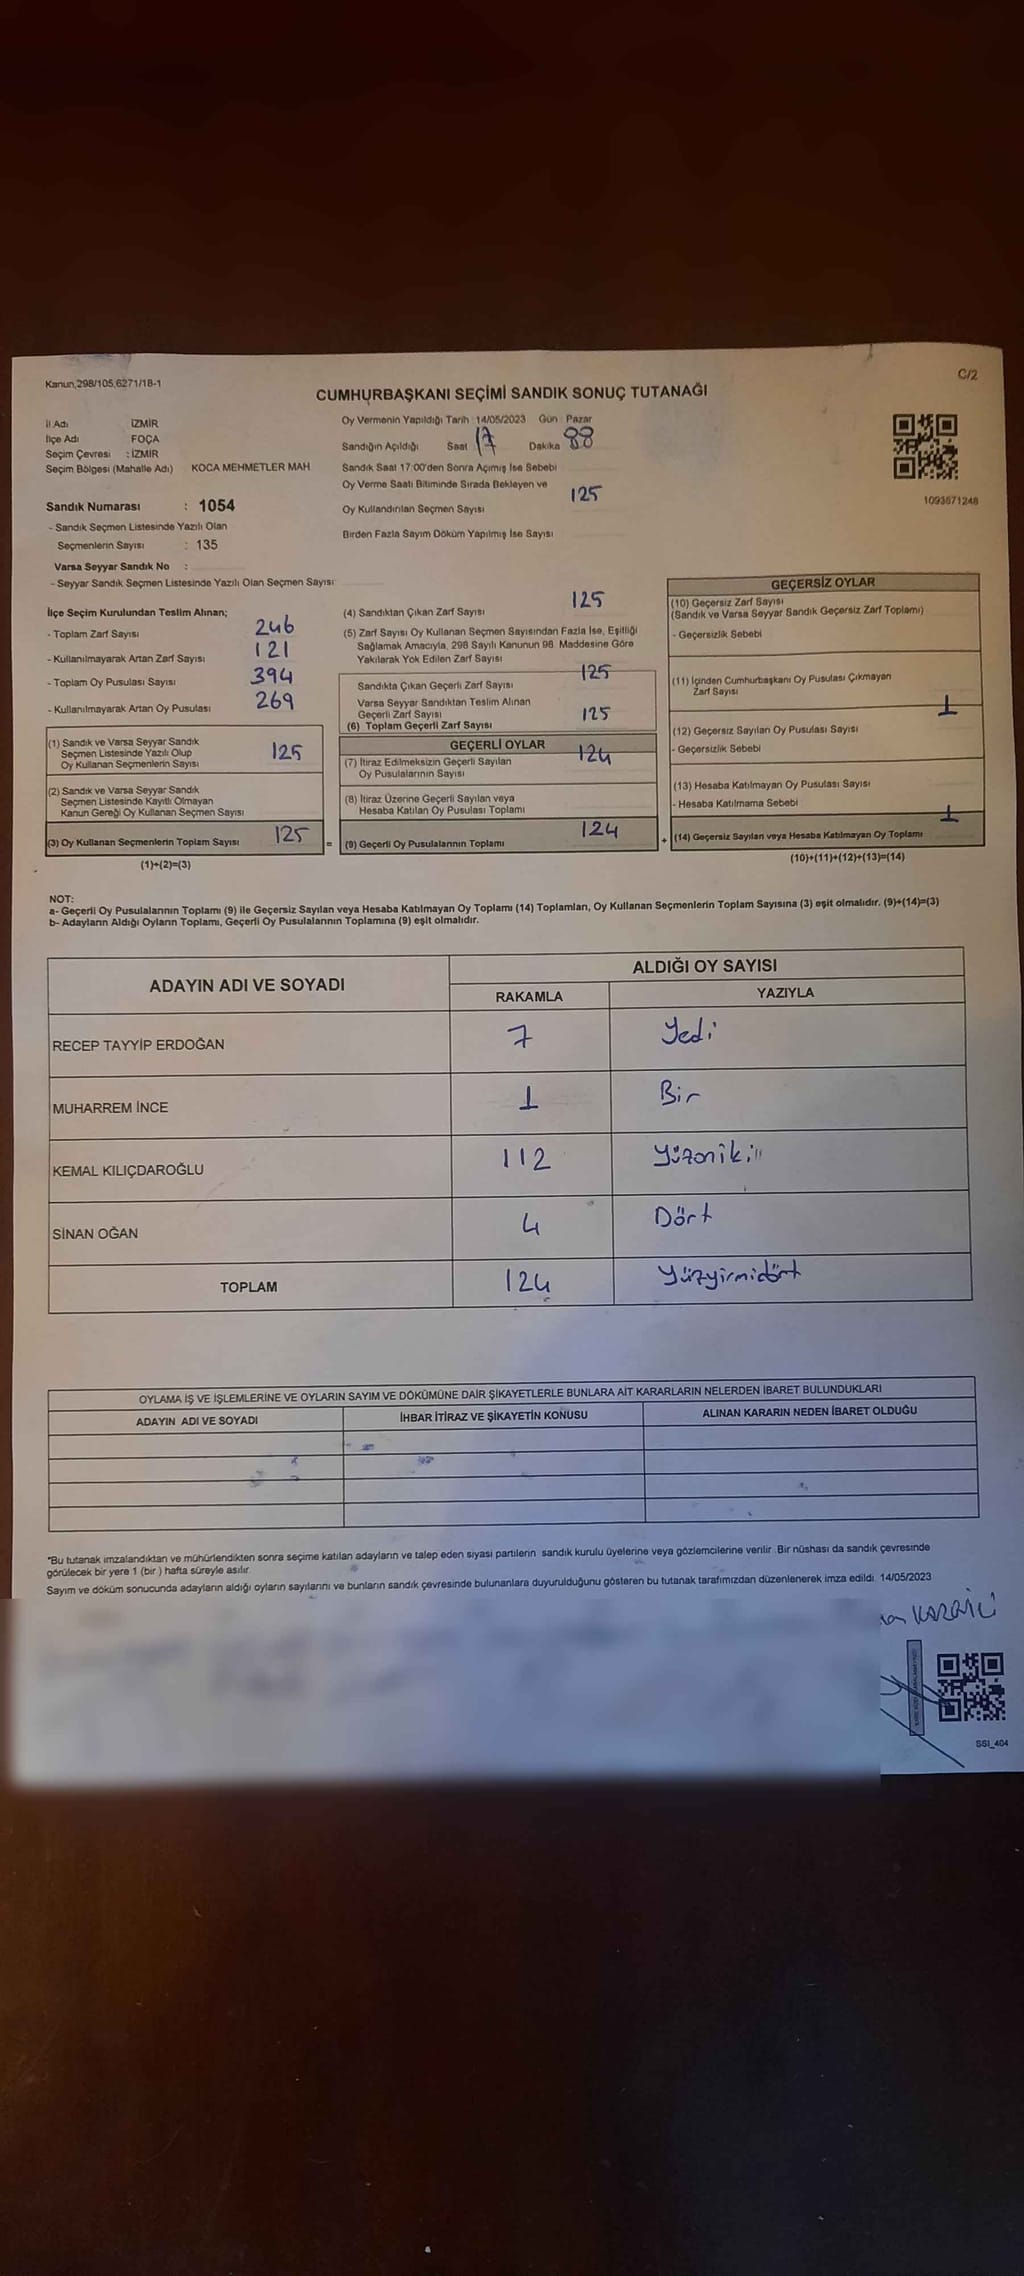 Kanun,298/105,6271/18-1
C/2
CUMHURBAŞKANI SEÇİMİ SANDIK SONUÇ TUTANAĞI
İl Adı İZMİR
İlçe Adı FOÇA
Seçim Çevresi : İZMİR
Seçim Bölgesi (Mahalle Adı) KOCA MEHMETLER MAH
Sandık Numarası : 1054
- Sandık Seçmen Listesinde Yazılı Olan
Seçmenlerin Sayısı : 135
Varsa Seyyar Sandık No :
- Seyyar Sandık Seçmen Listesinde Yazılı Olan Seçmen Sayısı
Oy Vermenin Yapıldığı Tarih 14/05/2023 Gün Pazar
Sandığın Açıldığı Saat 17 Dakika
Sandık Saat 17:00'den Sonra Açımış İse Sebebi
Oy Verme Saati Bitiminde Sırada Bekleyen ve
Oy Kullandırılan Seçmen Sayısı 125
Birden Fazla Sayım Döküm Yapılmış İse Sayısı
1093671248
İlçe Seçim Kurulundan Teslim Alınan;
- Toplam Zarf Sayısı 246
- Kullanılmayarak Artan Zarf Sayısı 121
- Toplam Oy Pusulası Sayısı 394
- Kullanılmayarak Artan Oy Pusulası 269
(1) Sandık ve Varsa Seyyar Sandık
Seçmen Listesinde Yazılı Olup
Oy Kullanan Seçmenlerin Sayısı 125
(2) Sandık ve Varsa Seyyar Sandık
Seçmen Listesinde Kayıtlı Olmayan
Kanun Gereği Oy Kullanan Seçmen Sayısı
(3) Oy Kullanan Seçmenlerin Toplam Sayısı 125 =
(1)+(2)=(3)
(4) Sandıktan Çıkan Zarf Sayısı 125
(5) Zarf Sayısı Oy Kullanan Seçmen Sayısından Fazla İse, Eşitliği
Sağlamak Amacıyla, 298 Sayılı Kanunun 98. Maddesine Göre
Yakılarak Yok Edilen Zarf Sayısı
Sandıkta Çıkan Geçerli Zarf Sayısı 125
Varsa Seyyar Sandıktan Teslim Alınan
Geçerli Zarf Sayısı
(6) Toplam Geçerli Zarf Sayısı 125
GEÇERLİ OYLAR
(7) İtiraz Edilmeksizin Geçerli Sayılan
Oy Pusulalarının Sayısı 124
(8) İtiraz Üzerine Geçerli Sayılan veya
Hesaba Katılan Oy Pusulası Toplamı
(9) Geçerli Oy Pusulalarının Toplamı 124 +
GEÇERSİZ OYLAR
(10) Geçersiz Zarf Sayısı
(Sandık ve Varsa Seyyar Sandık Geçersiz Zarf Toplamı)
- Geçersizlik Sebebi
(11) İçinden Cumhurbaşkanı Oy Pusulası Çıkmayan
Zarf Sayısı
(12) Geçersiz Sayılan Oy Pusulası Sayısı 1
- Geçersizlik Sebebi
(13) Hesaba Katılmayan Oy Pusulası Sayısı
- Hesaba Katılmama Sebebi
(14) Geçersiz Sayılan veya Hesaba Katılmayan Oy Toplamı 1
(10)+(11)+(12)+(13)=(14)
NOT:
a- Geçerli Oy Pusulalarının Toplamı (9) ile Geçersiz Sayılan veya Hesaba Katılmayan Oy Toplamı (14) Toplamları, Oy Kullanan Seçmenlerin Toplam Sayısına (3) eşit olmalıdır. (9)+(14)=(3)
b- Adayların Aldığı Oyların Toplamı, Geçerli Oy Pusulalarının Toplamına (9) eşit olmalıdır.
ADAYIN ADI VE SOYADI
ALDIĞI OY SAYISI
RAKAMLA YAZIYLA
RECEP TAYYİP ERDOĞAN 7 Yedi
MUHARREM İNCE 1 Bir
KEMAL KILIÇDAROĞLU 112 Yüzoniki
SİNAN OĞAN 4 Dört
TOPLAM 124 Yüzyirmidört
OYLAMA İŞ VE İŞLEMLERİNE VE OYLARIN SAYIM VE DÖKÜMÜNE DAİR ŞİKAYETLERLE BUNLARA AİT KARARLARIN NELERDEN İBARET BULUNDUKLARI
ADAYIN ADI VE SOYADI İHBAR İTİRAZ VE ŞİKAYETİN KONUSU ALINAN KARARIN NEDEN İBARET OLDUĞU
*Bu tutanak imzalandıktan ve mühürlendikten sonra seçime katılan adayların ve talep eden siyasi partilerin sandık kurulu üyelerine veya gözlemcilerine verilir. Bir nüshası da sandık çevresinde
görülecek bir yere 1 (bir) hafta süreyle asılır.
Sayım ve döküm sonucunda adayların aldığı oyların sayılarını ve bunların sandık çevresinde bulunanlara duyurulduğunu gösteren bu tutanak tarafımızdan düzenlenerek imza edildi. 14/05/2023
SSI_404